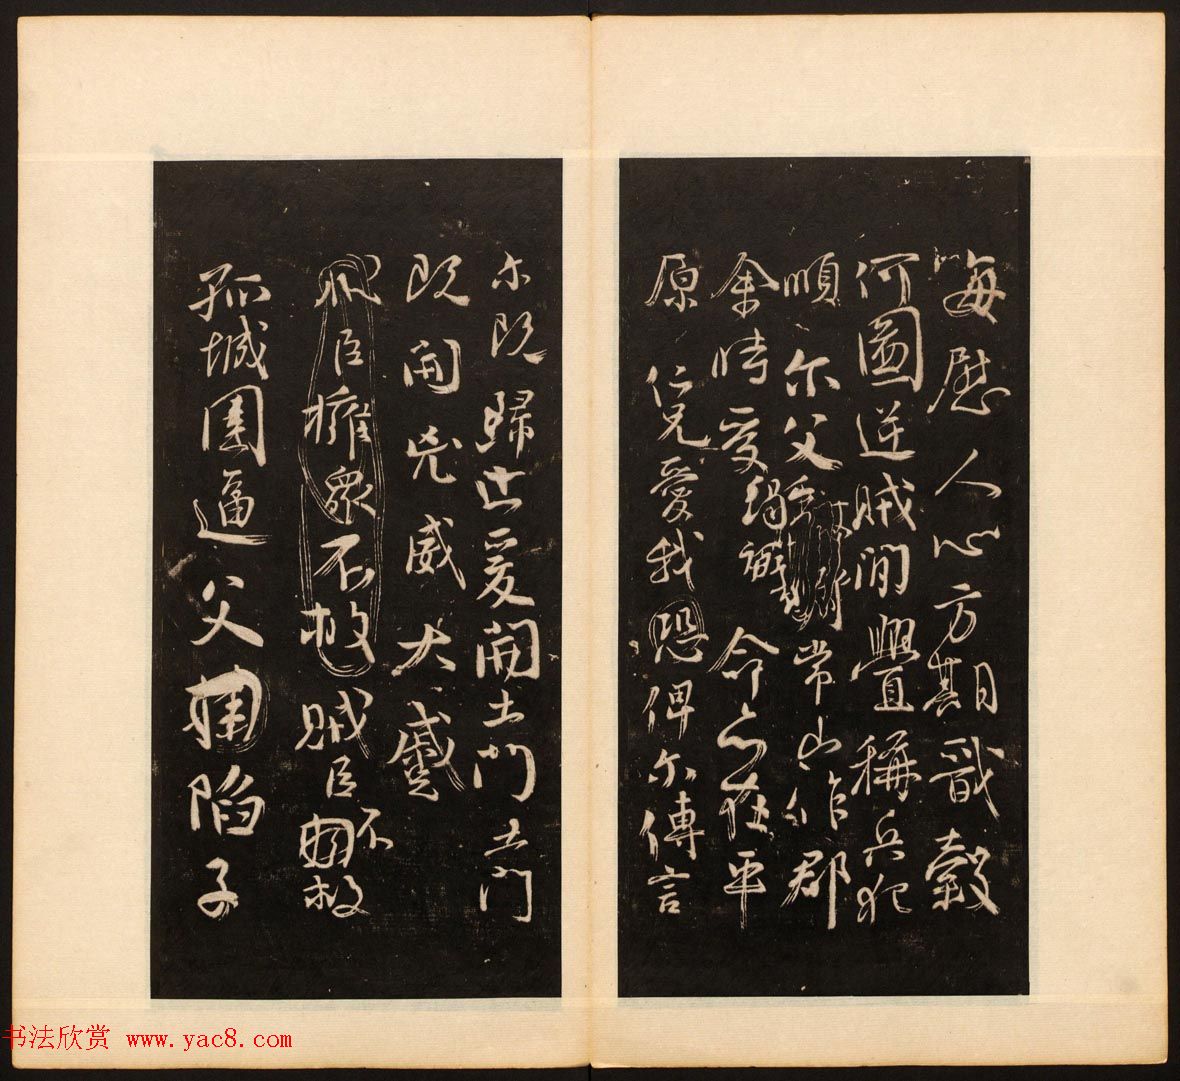 每慰人心方期戩穀
何圖逆賊閒舋稱兵犯
順尔父竭誠常山作郡
余時受命亦在平
原仁兄愛我恐俾尔傳言
尔既歸止爰開土門土門
既開兇威大蹙
臣擁衆不救賊臣不救
孤城圍逼父陷子
书法欣赏 www.yac8.com